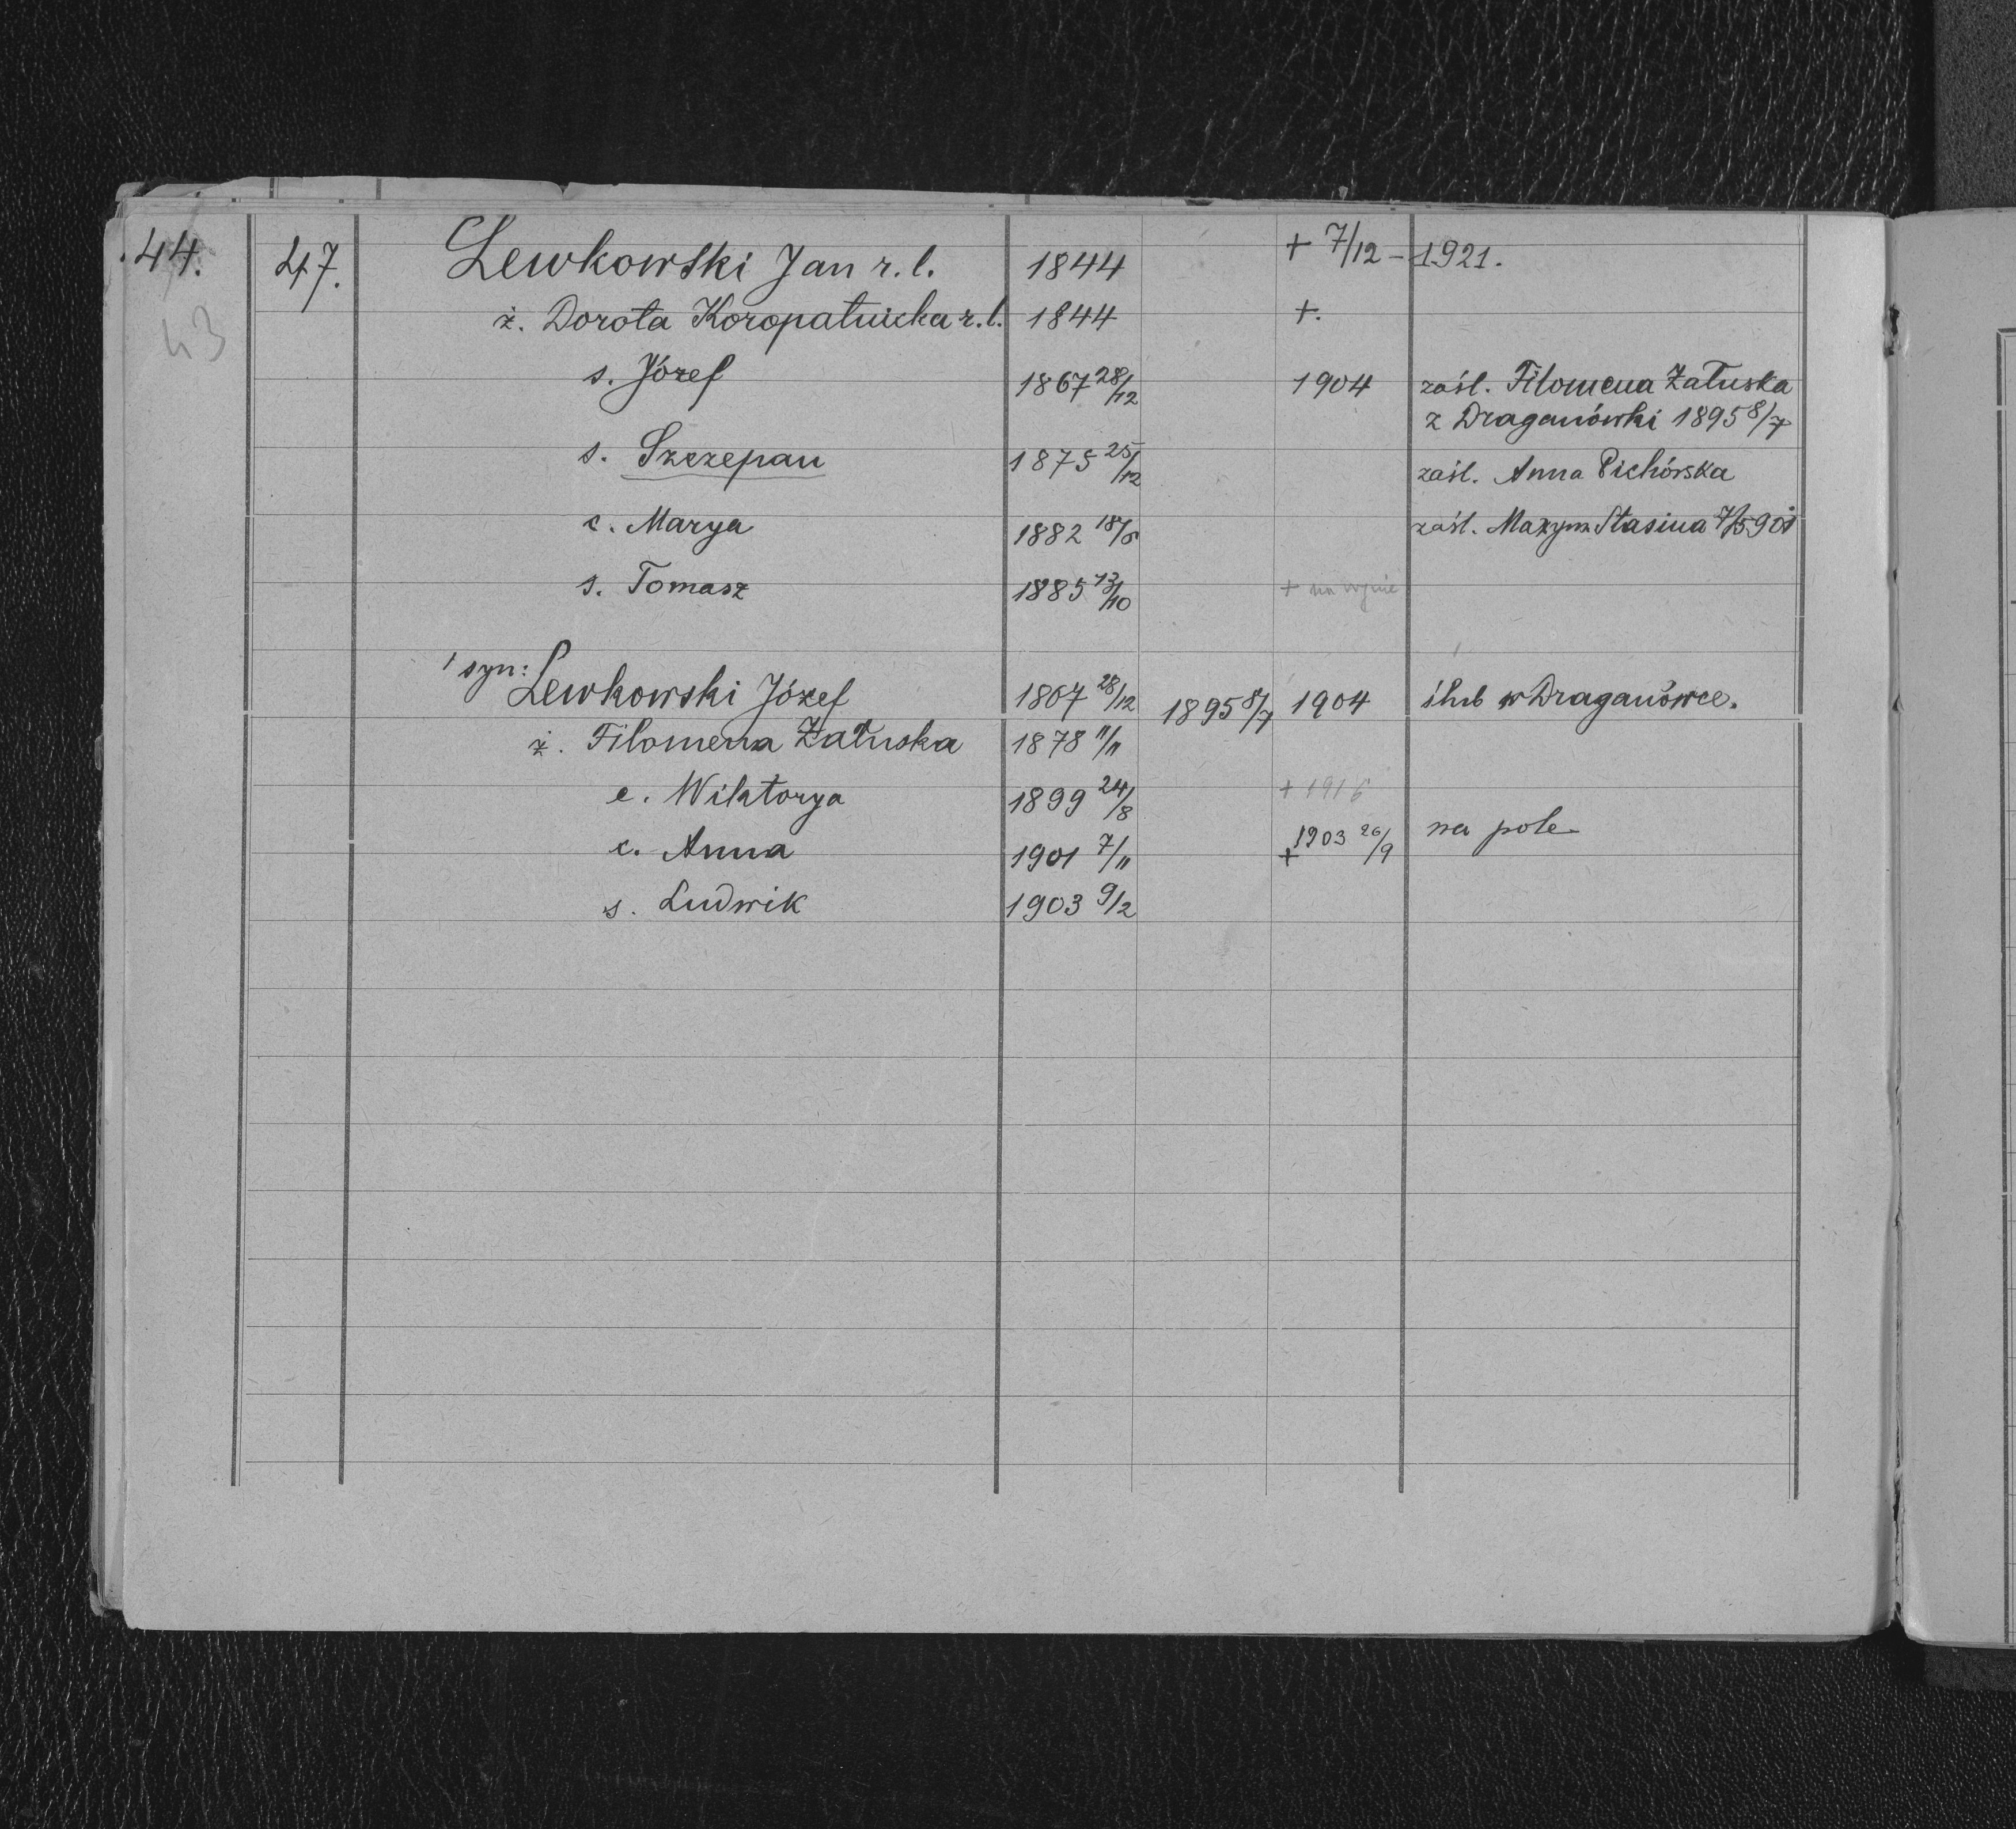 44. 47. Lewkowski Jan r. l. 1844 + 7/12 - 1921.
43
ż. Dorota Koropatnicka r. l. 1844 +.
s. Józef 1867 28/12 1904 zaśl. Filomena Załuska
z Draganówki 1895 8/7
s. Szczepan 1875 25/12 zaśl. Anna Pichórska
c. Marya 1882 zaśl. Stasina
s. Tomasz 1885 13/10 + na wojnie
1 syn: Lewkowski Józef 1867 28/12 1895 8/7 1904 ślub w Draganówce.
ż. Filomena Załuska 1878 11/11
c. Wiktorya 1899 24/8 +
c. Anna 1901 7/11 + 1903 26/9 na pole
s. Ludwik 1903 9/2